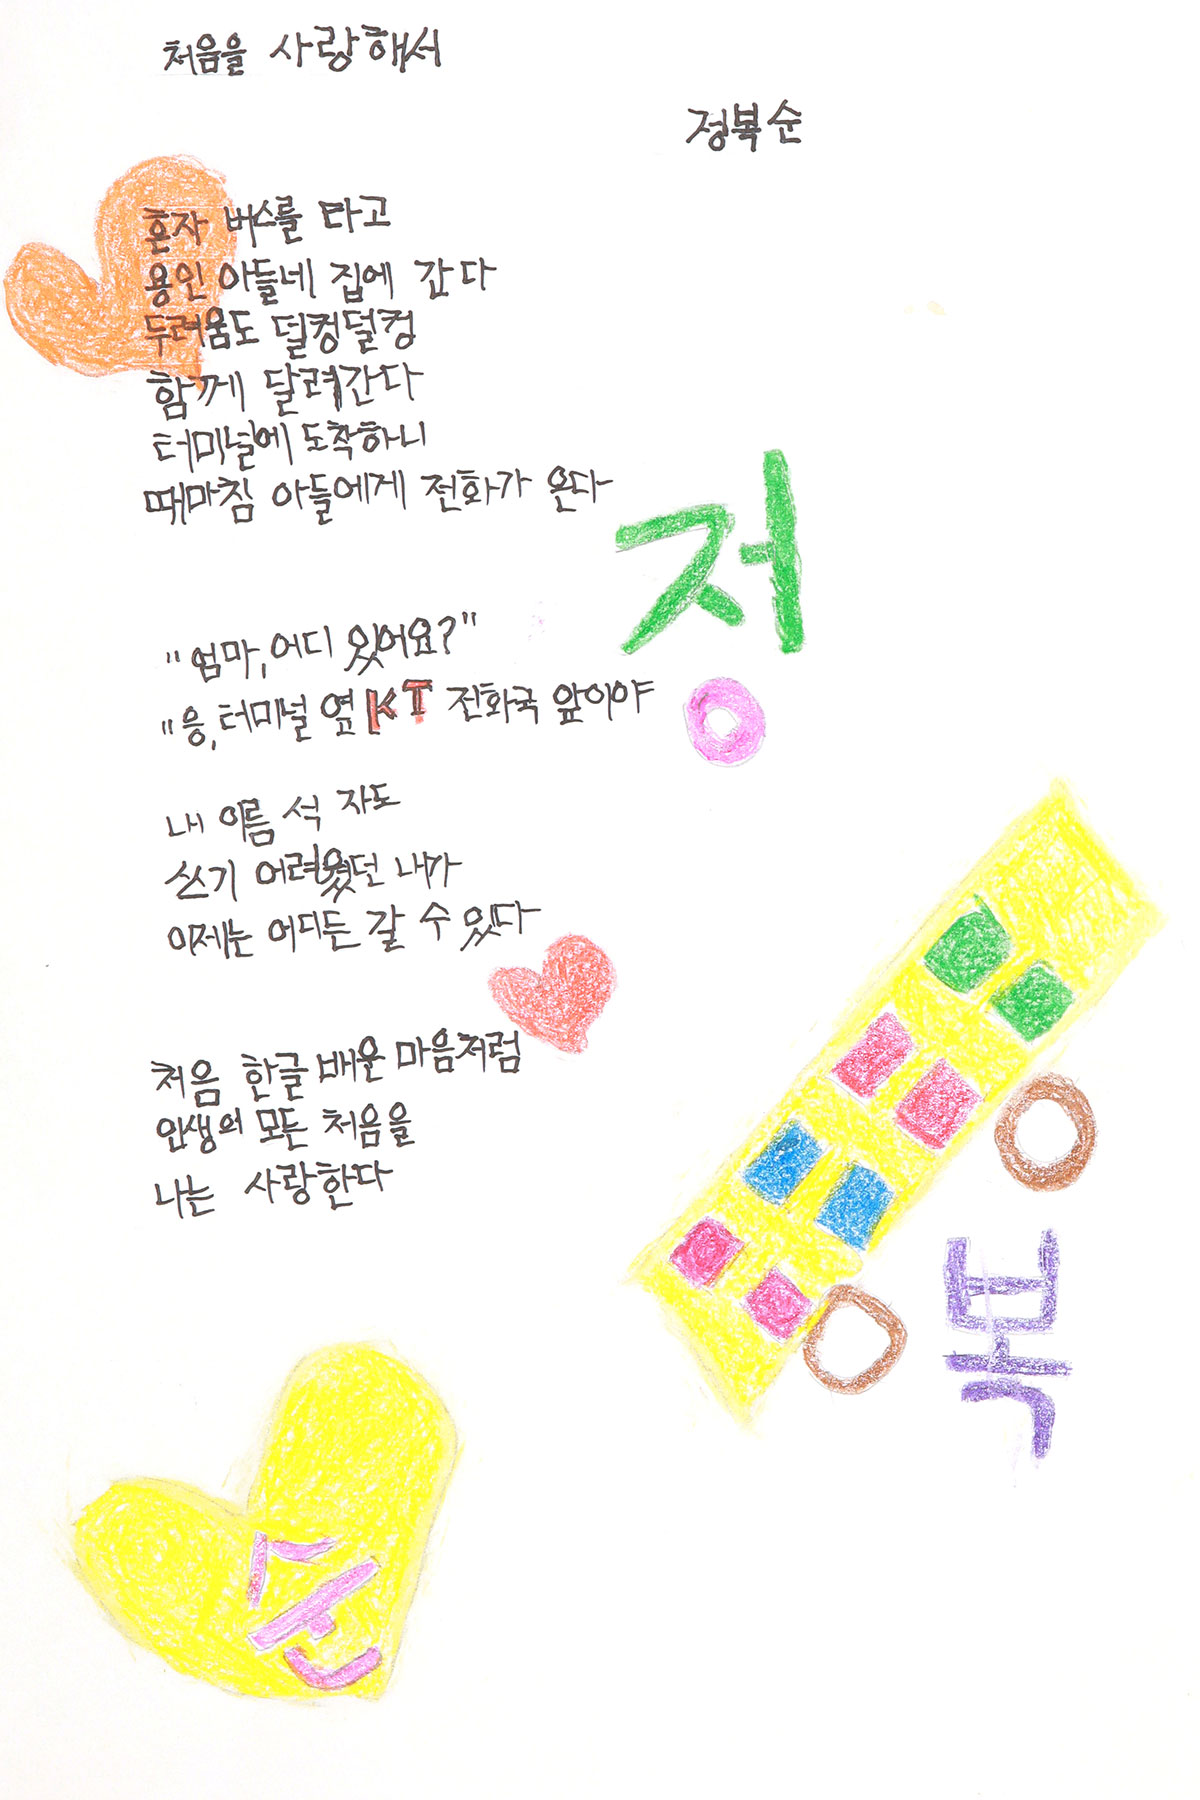 처음을 사랑해서
정복순
혼자 버스를 타고
용인 아들네 집에 간다
두려움도 덜컹덜컹
함께 달려간다
터미널에 도착하니
때마침 아들에게 전화가 온다
"엄마, 어디 있어요?"
"응, 터미널 옆 KT 전화국 앞이야
내 이름 석 자도
쓰기 어려웠던 내가
이제는 어디든 갈 수 있다
처음 한글 배운 마음처럼
인생의 모든 처음을
나는 사랑한다
정
복
순